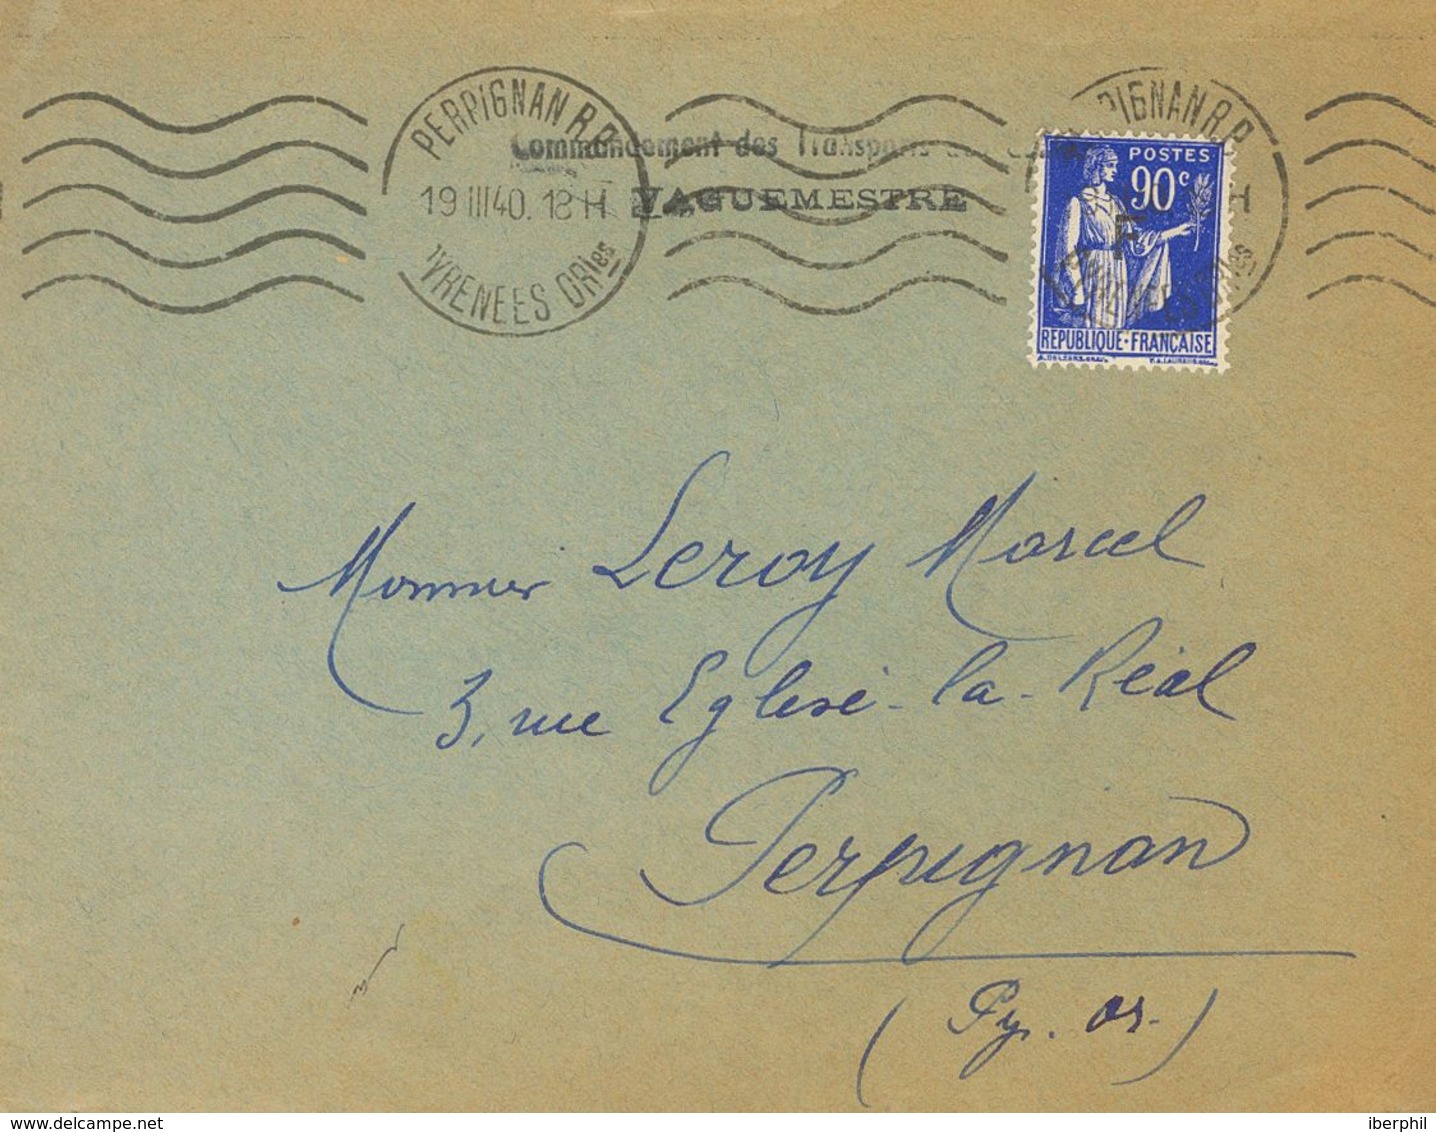 PERPIGNAN R.P.
19 III 40. 18 H
PYRENEES ORles
Commandement des Transports
VAGUEMESTRE
PERPIGNAN R.P.
H
POSTES
90c
F
REPUBLIQUE·FRANÇAISE
Monsieur Leroy Marcel
3, rue Eglise-la-Réal
Perpignan
(Py. Or.)
www.delcampe.net
iberphil